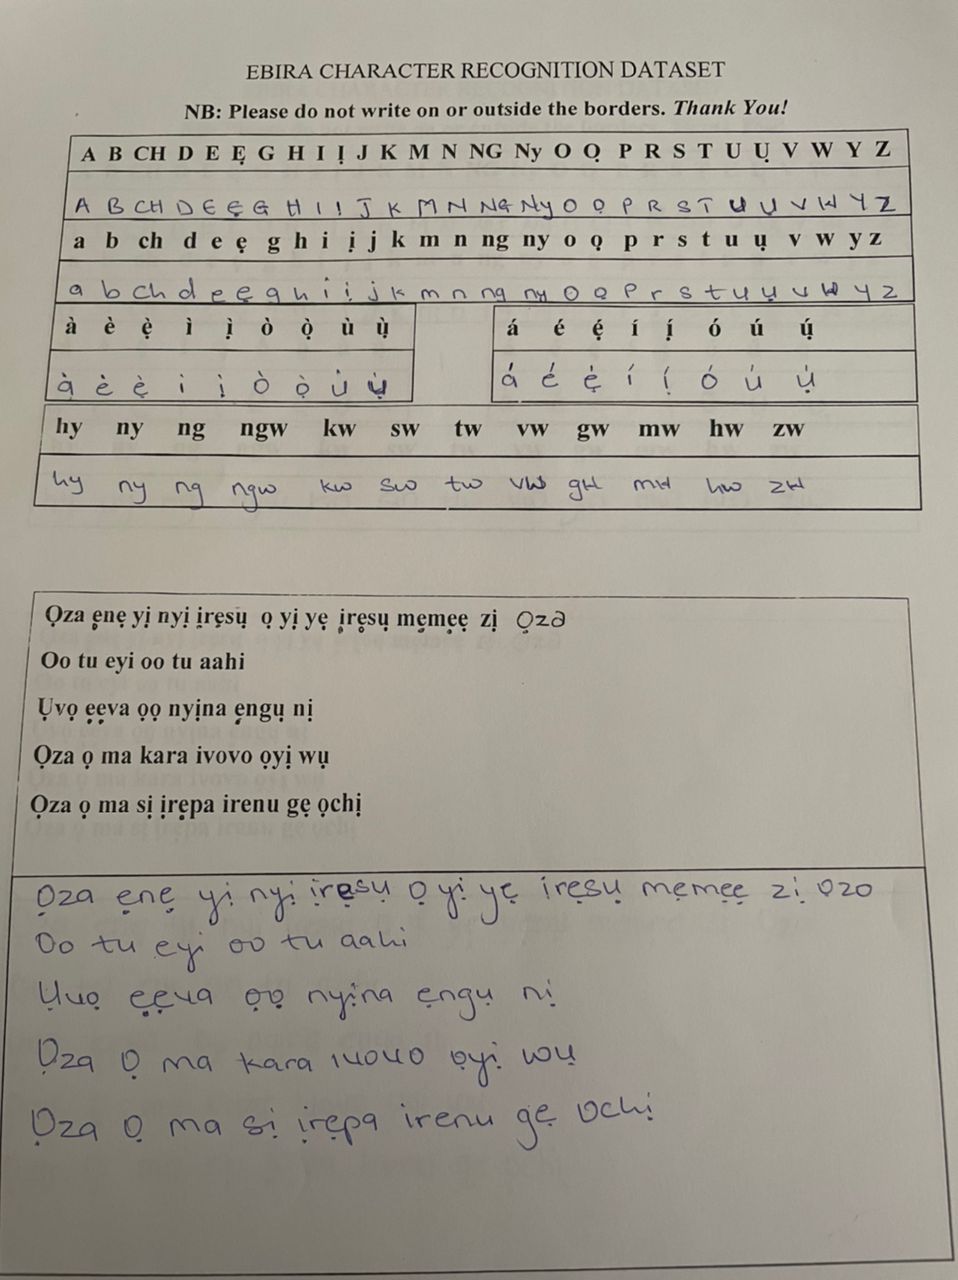 EBIRA CHARACTER RECOGNITION DATASET
NB: Please do not write on or outside the borders. Thank You!
A B CH D E Ẹ G H I Ị J K M N NG Ny O Ọ P R S T U Ụ V W Y Z
A B CH D E Ẹ G H I Ị J K M N NG Ny O Ọ P R S T U Ụ V W Y Z
a b ch d e ẹ g h i ị j k m n ng ny o ọ p r s t u ụ v w y z
a b ch d e ẹ g h i ị j k m n ng ny o ọ p r s t u ụ v w y z
à è ẹ̀ ì ị̀ ò ọ̀ ù ụ̀ á é ẹ́ í ị́ ó ú ụ́
à è ẹ̀ ì ị̀ ò ọ̀ ù ụ̀ á é ẹ́ í ị́ ó ú ụ́
hy ny ng ngw kw sw tw vw gw mw hw zw
hy ny ng ngw kw sw tw vw gw mw hw zw
Ọza ẹnẹ yị nyị ịrẹsụ ọ yị yẹ ịrẹsụ mẹmẹẹ zị Ọza
Oo tu eyi oo tu aahi
Ụvọ ẹẹva ọọ nyịna ẹngụ nị
Ọza ọ ma kara ivovo ọyị wụ
Ọza ọ ma sị ịrẹpa irenu gẹ ọchị
Ọza ẹnẹ yị nyị ịrẹsụ Ọ yị yẹ irẹsụ mẹmẹẹ zị ọzo
Oo tu eyi oo tu aahi
Ụvọ ẹẹva ọọ nyịna ẹngụ nị
Ọza Ọ ma kara ivovo ọyị wụ
Ọza Ọ ma sị ịrẹpa irenu gẹ ọchị